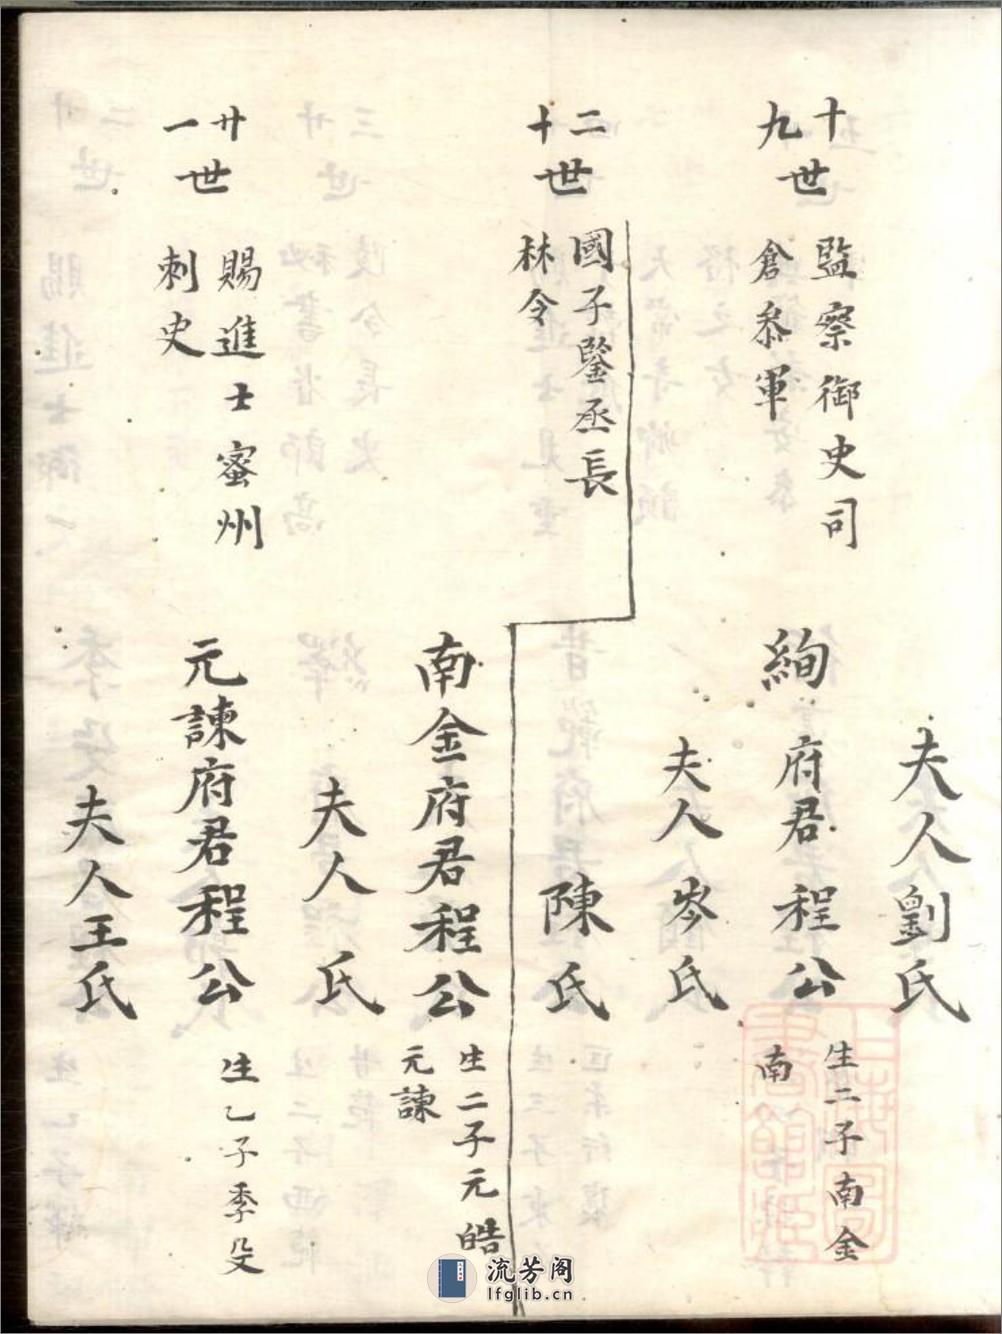 夫人劉氏
十九世
監察御史司
倉叅軍
絢府君程公
生二子南金
南
夫人岑氏
二十世
國子鑒丞長
林令
陳氏
南金府君程公
生二子元皓
元諫
夫人氏
廿一世
賜進士蜜州
刺史
元諫府君程公
生乙子季殳
夫人王氏
流芳阁
lfglib.cn